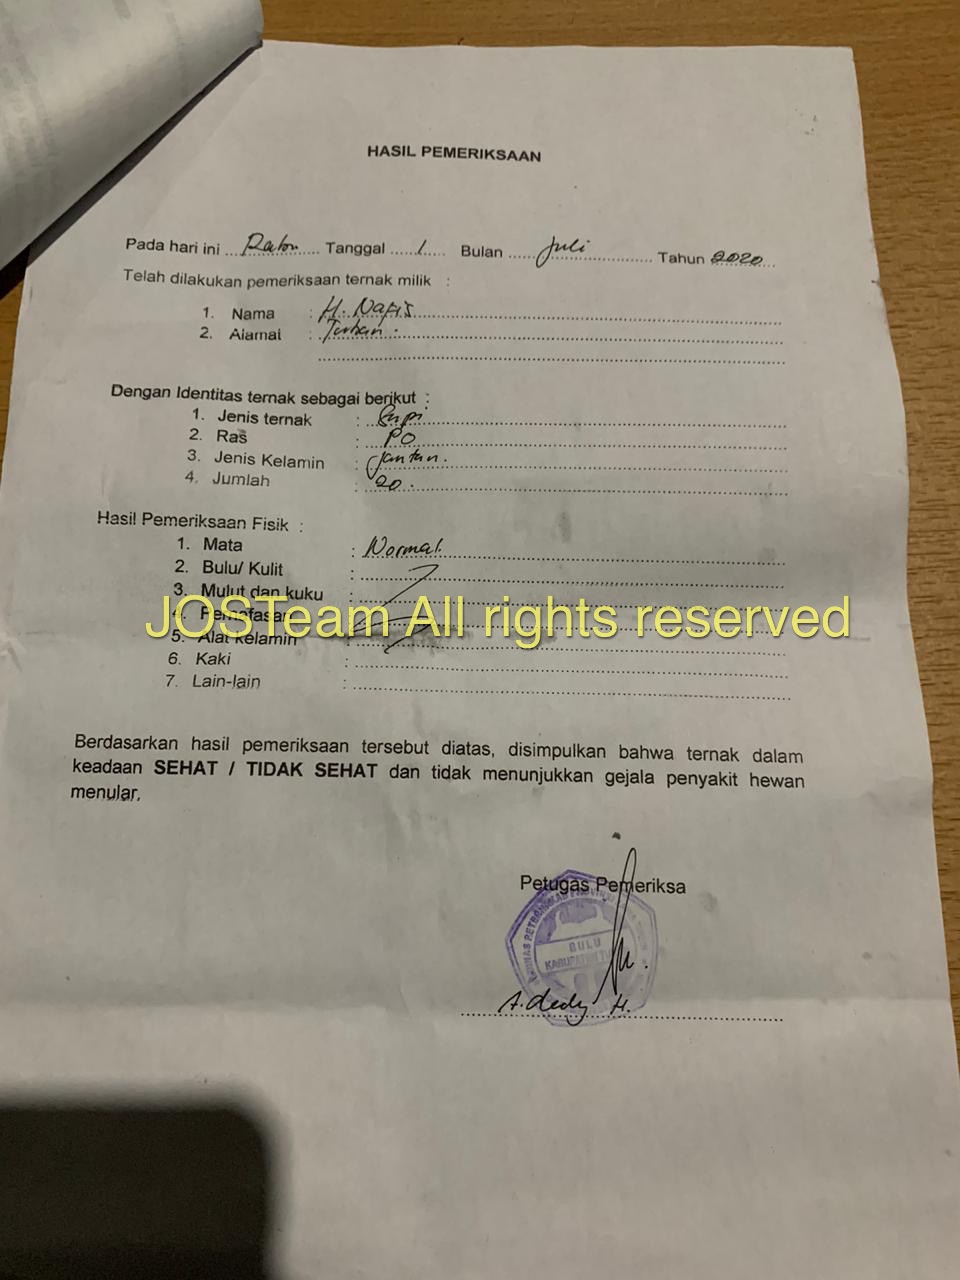 HASIL PEMERIKSAAN
Pada hari ini Rabu Tanggal 1 Bulan Juli Tahun 2020
Telah dilakukan pemeriksaan ternak milik :
1. Nama : H. Nafis
2. Alamat : Tuban.
Dengan Identitas ternak sebagai berikut :
1. Jenis ternak : Sapi
2. Ras : PO
3. Jenis Kelamin : Jantan.
4. Jumlah : 20.
Hasil Pemeriksaan Fisik :
1. Mata : Normal.
2. Bulu/ Kulit :
3. Mulut dan kuku :
4. Pernafasan
JOSTeam All rights reserved
5. Alat kelamin :
6. Kaki :
7. Lain-lain :
Berdasarkan hasil pemeriksaan tersebut diatas, disimpulkan bahwa ternak dalam
keadaan SEHAT / TIDAK SEHAT dan tidak menunjukkan gejala penyakit hewan
menular.
Petugas Pemeriksa
DINAS PETERNAKAN PROVINSI
BULU
KABUPATEN
A. dedy H.